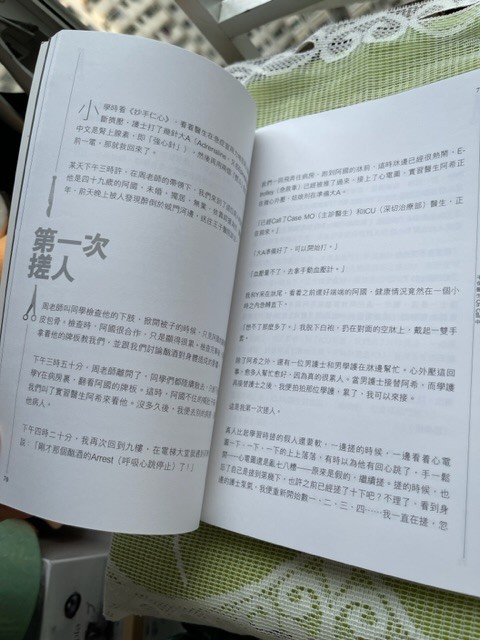 小學時看《妙手仁心》，看着醫生在急症室
斷擠壓，護士打了幾針大A（Adrenaline，又名
中文是腎上腺素，即「強心針」），然後再用兩個
前一電，那就救回來了。
某天下午三時許，在周老師的帶領下，我們來到了
他是四十九歲的阿國，未婚、獨居、無業，
年，前天晚上被人發現醉倒於城門河邊，送往王子
第一次
搓人
周老師叫同學檢查他的下肢，掀開被子的時候，只見阿國
皮包骨。檢查時，阿國很合作，只是顯得很累。檢查
拿着他的牌板教我們，並跟我們討論酗酒對身體造成的
下午三時五十分，周老師離開了，同學們都陸續散去，
學Y在病房裏，翻看阿國的牌板。這時，阿國不住的
我們叫了實習醫生阿希來看他。沒多久後，我便去別的
他病人。
下午四時二十分，我再次回到九樓，在電梯大堂就遇到
說：「剛才那個酗酒的Arrest（呼吸心跳停止）了！」
78
我們一同飛奔往病房，跑到阿國的牀前，這時牀邊已經很熱鬧，E-
trolley（急救車）已經被推了過來，接上了心電圖，實習醫生阿希正
在做心外壓，姑娘則在準備大A。
「已經Call了Case MO（主診醫生）和ICU（深切治療部）醫生，正
在前來。」
「大A準備好了，可以開始打。」
「血壓量不了，去拿手動血壓計。」
我和Y呆在牀尾，看着之前還好端端的阿國，健康情況竟然在一個小
時之內急轉直下。
「想不了那麼多了。」我脫下白袍，扔在對面的空牀上，戴起一雙手
套。
除了阿希之外，還有一位男護士和男學護在牀邊幫忙。心外壓這回
事，愈多人幫忙愈好，因為真的很累人。當男護士接替阿希，而學護
再接替護士之後，我便拍拍那位學護，累了，我可以來接。
這是我第一次搓人。
真人比起學習時搓的假人還要軟，一邊搓的時候，一邊看着心電
圖一下、一下、一下的上上落落，有時以為他有回心跳了。手一鬆
開——心電圖還是亂七八糟——原來是假的，繼續搓。搓的時候，也
忘了自己是搓到第幾下，也許之前已經搓了十下吧？不理了，看到身
邊的護士泵氣，我便重新開始數一、二、三、四……我一直在搓，忽